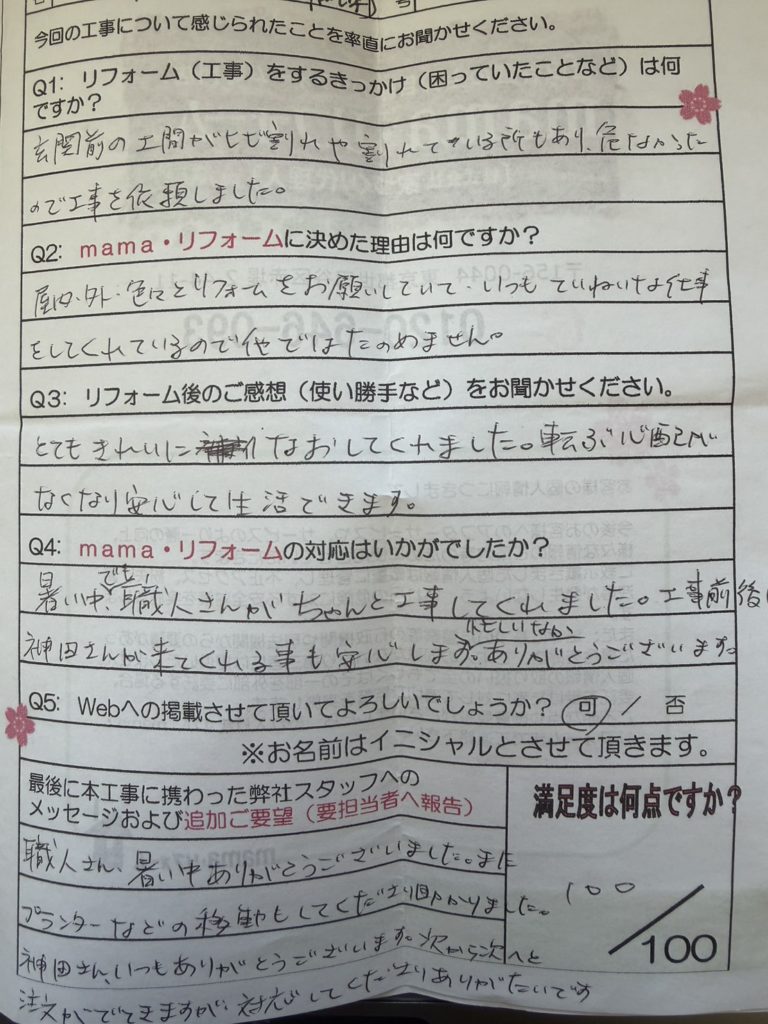 今回の工事について感じられたことを率直にお聞かせください。
Q1: リフォーム（工事）をするきっかけ（困っていたことなど）は何
ですか？
玄関前の土間がヒビ割れや割れている所もあり、危なかった
ので工事を依頼しました。
Q2: mama・リフォームに決めた理由は何ですか？
屋内・外・色々とリフォームをお願いしていて、いつもていねいな仕事
をしてくれているので他ではたのめません。
Q3: リフォーム後のご感想（使い勝手など）をお聞かせください。
とてもきれいになおしてくれました。転ぶ心配が
なくなり安心して生活できます。
Q4: mama・リフォームの対応はいかがでしたか？
暑い中でも、職人さんがちゃんと工事してくれました。工事前後に
忙しいなか
神田さんが来てくれる事も安心します。ありがとうございます。
Q5: Webへの掲載させて頂いてよろしいでしょうか？ 可 / 否
※お名前はイニシャルとさせて頂きます。
最後に本工事に携わった弊社スタッフへの
メッセージおよび追加ご要望（要担当者へ報告）
満足度は何点ですか？
職人さん、暑い中ありがとうございました。また
プランターなどの移動もしてくださり助かりました。
100
/100
神田さん、いつもありがとうございます。次から次へと
注文がでてきますが、対応してくださりありがたいです